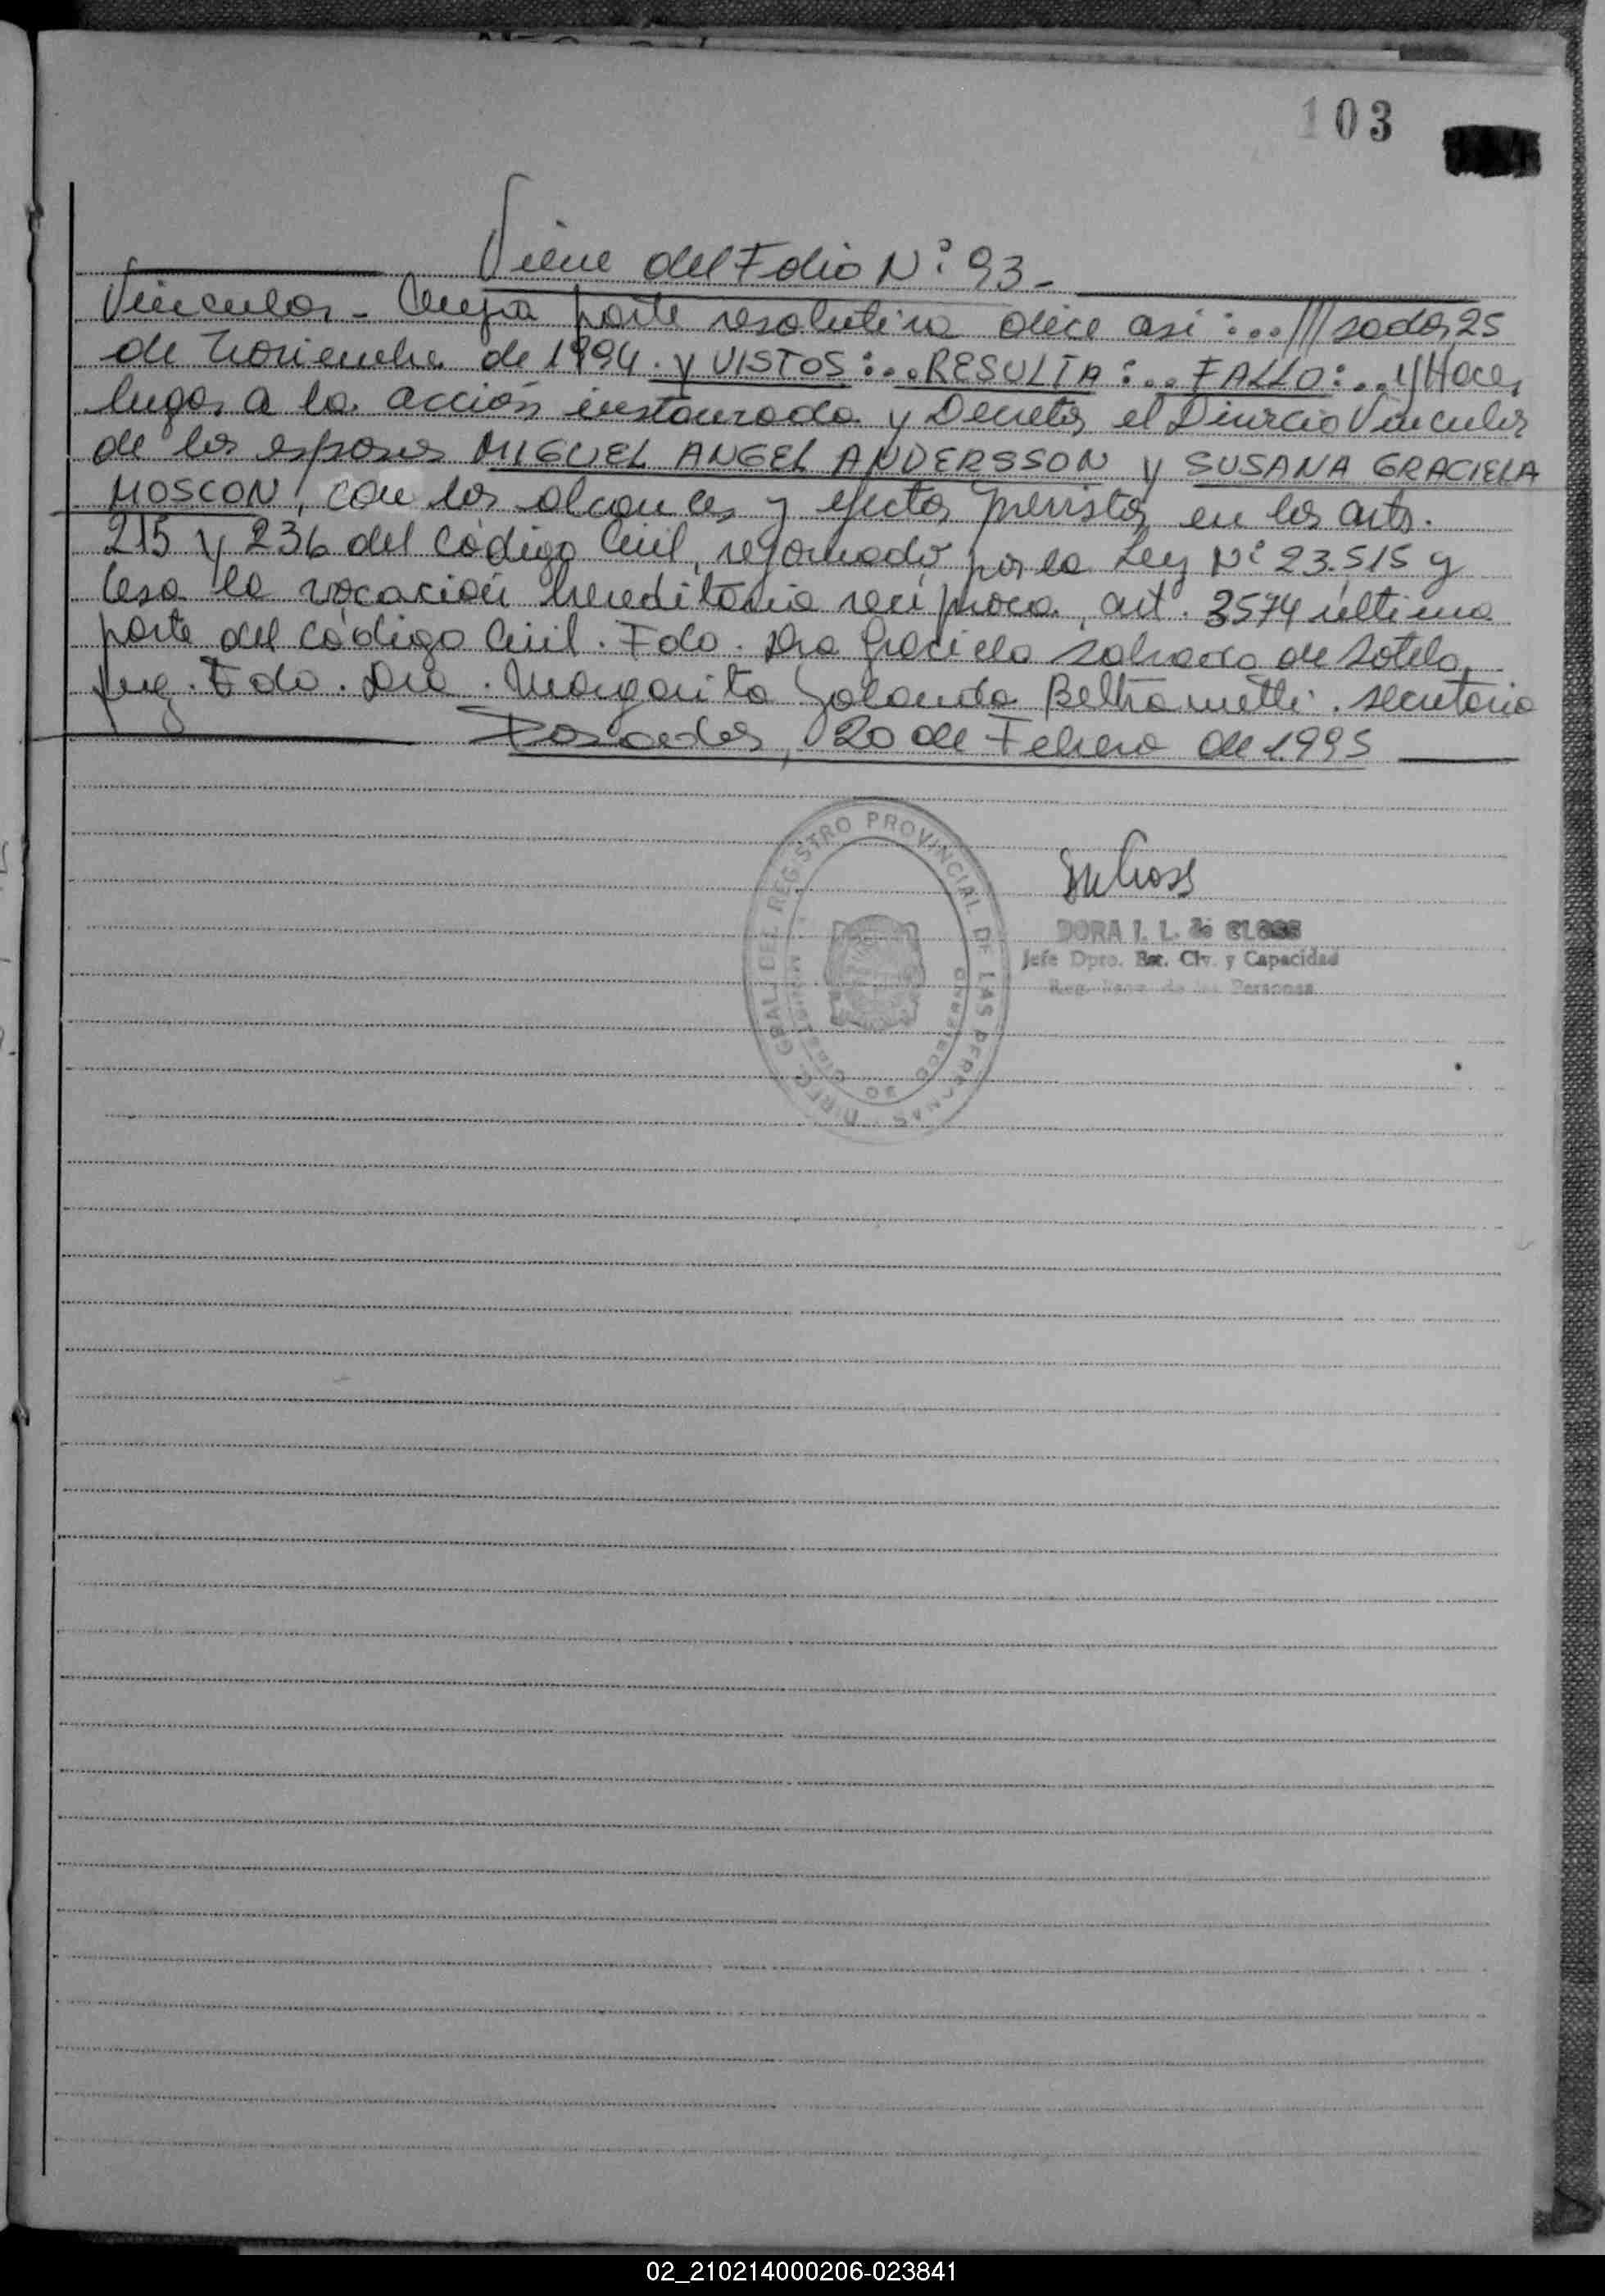 103
Viene del Folio N° 93-
Vincular - Cuya parte resolutiva dice asi:...///sadas, 25
de Noviembre de 1994. y VISTOS:... RESULTA:... FALLO:... 1) Hacer
lugar a la acción instaurada y Decretar el Divorcio Vincular
de los esposos MIGUEL ANGEL ANDERSSON y SUSANA GRACIELA
MOSCON, con los alcances y efectos previstos en los arts.
215 y 236 del Código Civil, reformado por la Ley N° 23.515 y
cesa la vocación hereditaria recíproca, art. 3574 última
parte del Código Civil. Fdo. Dra Graciela Salvado de Sotelo.
Juez. Fdo. Dra. Margarita Yolanda Beltrametti. Secretaria
Posadas, 20 de Febrero de 1.995
DIREC. GRAL. DEL REGISTRO PROVINCIAL DE LAS PERSONAS
DORA I. L. de CLOSS
Jefe Dpto. Est. Civ. y Capacidad
de las Personas
02_210214000206-023841